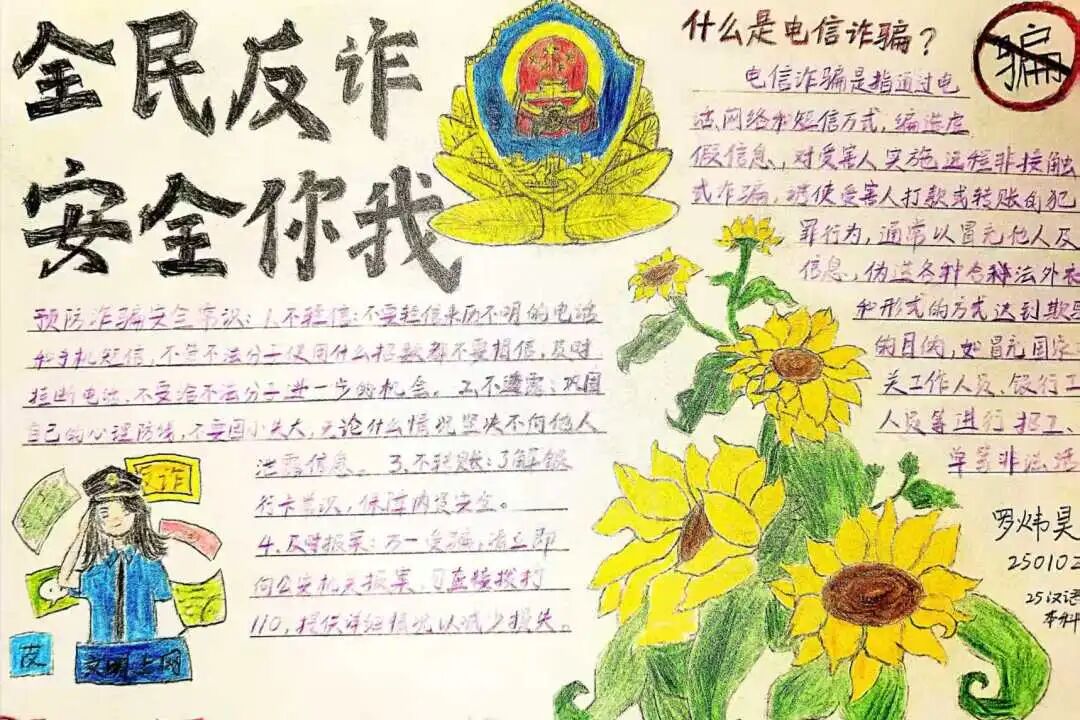 全民反诈
安全你我
预防诈骗安全常识：1.不轻信：不要轻信来历不明的电话
和手机短信，不管不法分子使用什么招数都不要相信，及时
挂断电话，不要给不法分子进一步的机会。2.不透露：巩固
自己的心理防线，不要因小失大，无论什么情况坚决不向他人
泄露信息。3.不转账：了解银
行卡常识，保障内资安全。
4.及时报案：万一受骗，请立即
向公安机关报案，可直接拨打
110，提供详细情况以减少损失。
反诈
反
文明上网
什么是电信诈骗？
骗
电信诈骗是指通过电
话、网络和短信方式，编造虚
假信息，对受害人实施远程非接触
式诈骗，诱使受害人打款或转账的犯
罪行为，通常以冒充他人及
信息，伪造各种合法外衣
和形式的方式达到欺骗
的目的，如冒充国家
关工作人员、银行工
人员等进行招工、
单等非法活
罗炜昊
250102
25汉语
本科